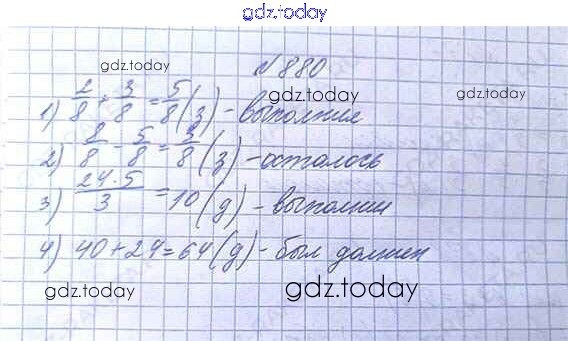 gdz.today
№ 880
gdz.today
1) 2/8 + 3/8 = 5/8 (з) - выполнил
gdz.today
gdz.today
2) 8/8 - 5/8 = 3/8 (з) - осталось
3) 24·5/3 = 10 (д) - выполнил
4) 40+24=64 (д) - был должен
gdz.today
gdz.today